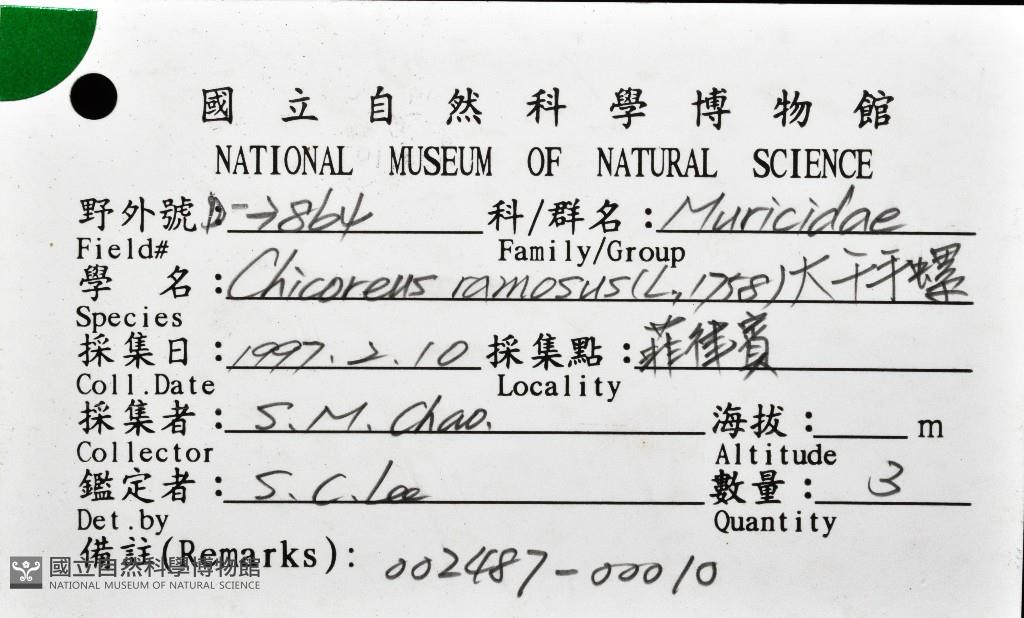 國立自然科學博物館
NATIONAL MUSEUM OF NATURAL SCIENCE
野外號 7864 科/群名：Muricidae
Field# Family/Group
學 名：Chicoreus ramosus (L, 1758) 大千手螺
Species
採集日：1997.2.10 採集點：菲律賓
Coll.Date Locality
採集者：S.M. Chao. 海拔： m
Collector Altitude
鑑定者：S.C. Lee 數量：3
Det.by Quantity
備註(Remarks): 002487-00010
國立自然科學博物館
NATIONAL MUSEUM OF NATURAL SCIENCE